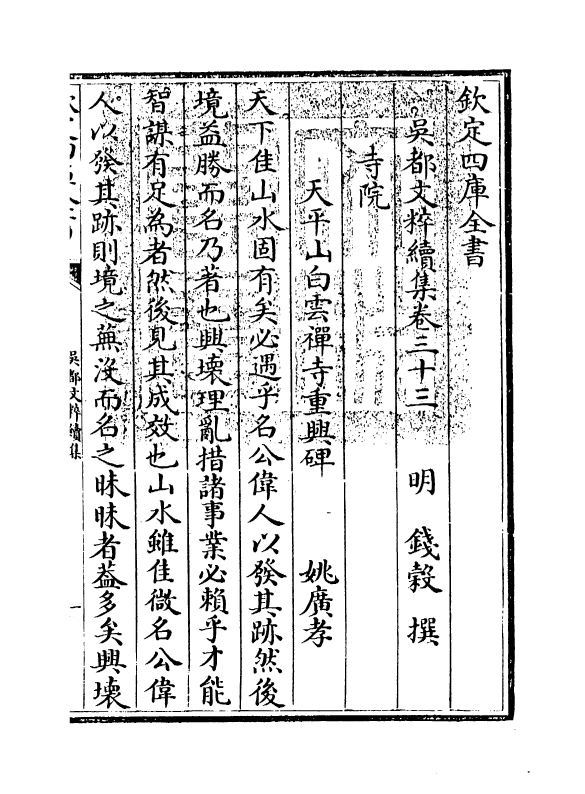 欽定四庫全書
吳都文粹續集卷三十三　明　錢穀　撰
寺院
天平山白雲禪寺重興碑　姚廣孝
天下佳山水固有矣必遇乎名公偉人以發其跡然後
境益勝而名乃著也興壞理亂措諸事業必賴乎才能
智謀有足為者然後見其成效也山水雖佳微名公偉
人以發其跡則境之蕪沒而名之昧昧者葢多矣興壞
吳都文粹續集
一